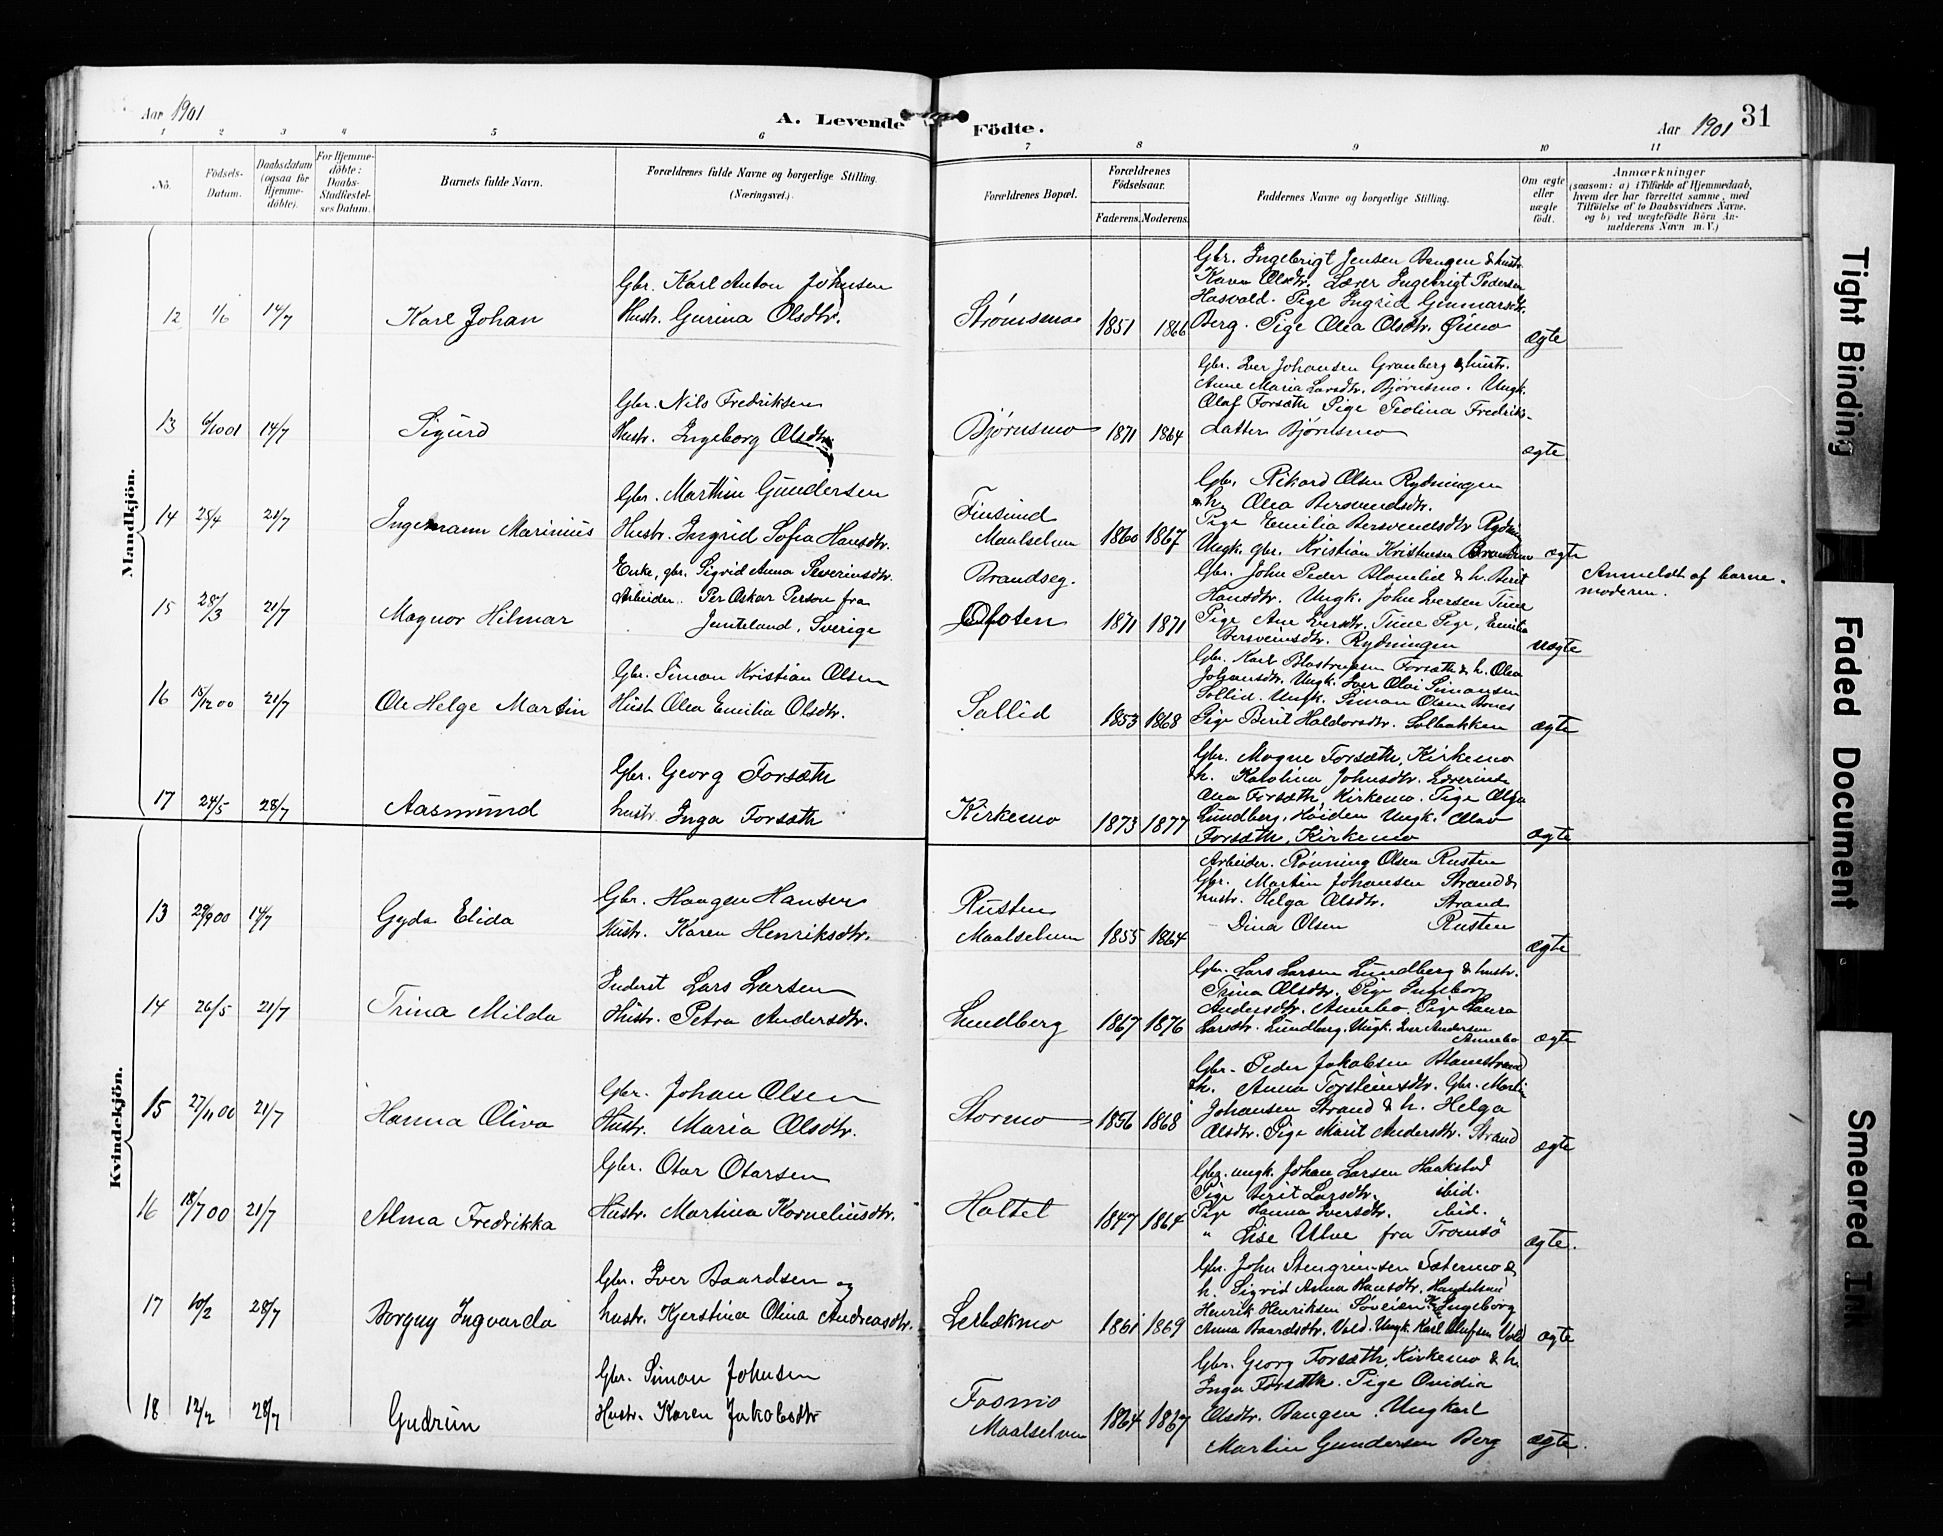 Aar 1901
A. Levende Födte.
Aar 1901
31
1 2 3 4 5 6 7 8 9 10 11
No.
Födsels-Datum.
Daabsdatum (ogsaa for Hjemme-döbte).
For Hjemme-döbte: Daabs-Stadfæstel-ses Datum.
Barnets fulde Navn.
Forældrenes fulde Navne og borgerlige Stilling.
(Næringsvei.)
Forældrenes Bopæl.
Forældrenes Födselsaar.
Faderens. Moderens.
Faddernes Navne og borgerlige Stilling.
Om ægte eller uægte födt.
Anmærkninger
(saasom: a) i Tilfælde af Hjemmedaab,
hvem der har forrettet samme, med
Tilföielse af to Daabsvidners Navne.
og b) ved uægtefödte Börn An-
melderens Navn m. V.)
Mandkjön.
12 1/6 14/7 Karl Johan
Gbr. Karl Anton Johnsen
Hustr. Gurina Olsdtr.
Strømsmo 1851 1866
Gbr. Ingebrigt Jensen Bangen & hustr.
Karen Olsdtr. Lærer Ingebrigt Pedersen
Hasvold. Pige Ingrid Gunnarsdtr.
Berg. Pige Olea Olsdtr. Øimo
ægte
13 6/10 01 14/7 Sigurd
Gbr. Nils Fredriksen
Hustr. Ingeborg Olsdtr.
Bjørnsmo 1871 1864
Gbr. Iver Johansen Granberg & hustr.
Anne Maria Larsdtr. Bjørnsmo. Ungk.
Olaf Forsæth Pige Teolina Fredriks-
datter Bjørnsmo
ægte
14 25/4 21/7 Ingemann Marinius
Gbr. Marthin Gundersen
Hustr. Ingrid Sofia Hansdtr.
Finsund
Maalselven 1860 1867
Gbr. Rikard Olsen Rydningen
& h. Olea Bersvendsdtr.
Pige Emilia Bersvendsdtr Rydnin
Ungk. gbr. Kristian Kristensen
ægte
15 28/3 21/7 Magnor Hilmar
Enke, gbr. Sigrid Anna Severinsdtr.
Arbeider. Per Oskar Person fra
Jemteland, Sverige
Brandseg.
Ofoten 1871 1871
Gbr. John Peder Blomlid & h. Berit
Hansdtr. Ungk. John Iversen Tune
Pige Ane Iversdtr. Tune Pige, Emilia
Bersveinsdtr. Rydningen
uægte
Anmeldt af barne-
moderen.
16 15/12 00 21/7 Ole Helge Martin
Gbr. Simon Kristian Olsen
Hustr Olea Emilia Olsdtr.
Sollid 1853 1868
Gbr. Karl Forsæth & h. Olea
Johansdtr. Ungk. Iver Olai Simonsen
Sollid. Ungk. Simon Olsen Bones
Pige Berit Haldorsdtr. Solbakken
ægte
17 24/5 28/7 Aasmund
Gbr. Georg Forsæth
hustr. Inga Forsæth
Kirkemo 1873 1877
Gbr. Mogne Forsæth, Kirkemo
& h. Karolina Johnsdtr. Lærerinde
Olea Forsæth, Kirkemo. Pige Olga
Lundberg, Høiden Ungk. Olav
Forsæth, Kirkemo
ægte
Kvindekjön.
13 29/9 00 14/7 Gyda Elida
Gbr. Haagen Hansen
Hustr. Karen Henriksdtr.
Rusten
Maalselven 1855 1864
Arbeider. Rønning Olsen Rusten
Gbr. Martin Johansen Strand &
hustr. Helga Olsdtr. Strand
Dina Olsen Rusten
ægte
14 26/5 21/7 Trina Milda
Inderst Lars Larsen
Hustr. Petra Andersdtr.
Lundberg 1867 1876
Gbr. Lars Larsen Lundberg & hustr.
Trina Olsdtr. Pige Ingeborg
Andersdtr. Annebo. Pige Laura
Larsdtr. Lundberg. Ungk. Iver Andersen
Annebo
ægte
15 27/11 00 21/7 Hanna Oliva
Gbr. Johan Olsen
Hustr. Maria Olsdtr.
Stormo 1856 1868
Gbr. Peder Jakobsen
& h. Anna Torsteinsdtr. Gbr. Martin
Johansen Strand & h. Helga
Olsdtr. Pige Marit Andersdtr. Strand
ægte
16 18/7 00 21/7 Alma Fredrikka
Gbr. Otar Otarsen
Hustr. Martina Korneliusdtr.
Holtet 1847 1864
Gbr. ungk. Johan Larsen Haakstad
Pige Berit Larsdtr. ibid.
Pige Hanna Iversdtr. ibid.
" Lise Ulve fra Tromsö
ægte.
17 10/2 28/7 Borgny Ingvarda
Gbr. Iver Baardsen og
hustr. Kjerstina Olina Andreasdtr.
Lerbækmo 1861 1869
Gbr. John Stengrimsen Sætermo &
h. Sigrid Anna Hansdtr. Handelsm.
Henrik Henriksen Søveien Ingeborg
Anna Baardsdtr. Vold. Ungk. Karl Olufsen Vold
ægte
18 12/2 28/7 Gudrun
Gbr. Simon Johnsen
Hustr. Karen Jakobsdtr
Fosmo
Maalselven 1864 1867
Gbr. Georg Forsæth, Kirkemo & h.
Inga Forsæth. Pige Ovidia
Olsdtr. Bangen. Ungkarl
Martin Gundersen Berg
ægte.
Tight Binding
Faded Document
Smeared Ink